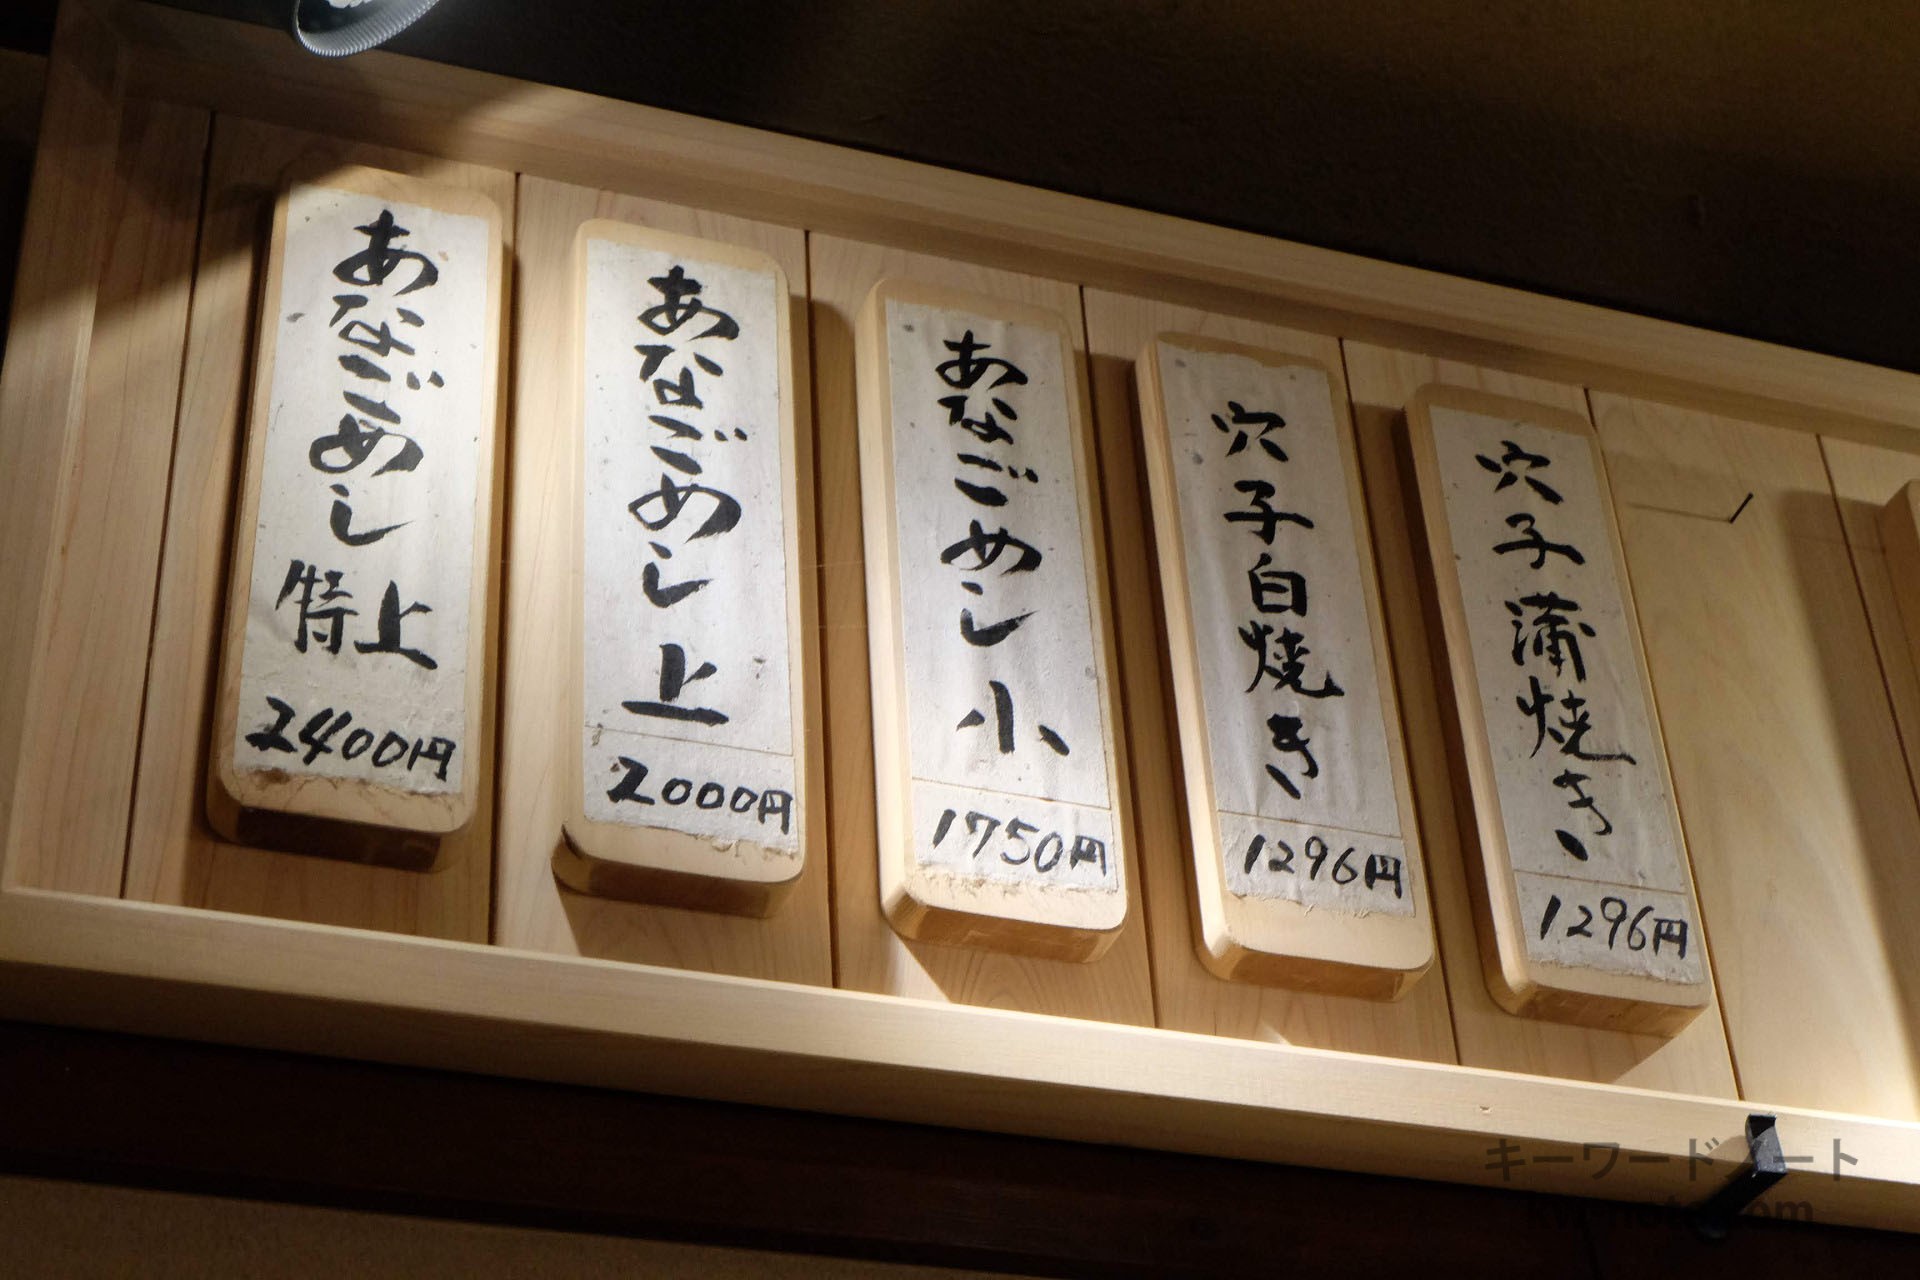 あなごめし
特上
2400円
あなごめし
上
2000円
あなごめし
小
1750円
穴子白焼き
1296円
穴子蒲焼き
1296円
キーワードノート